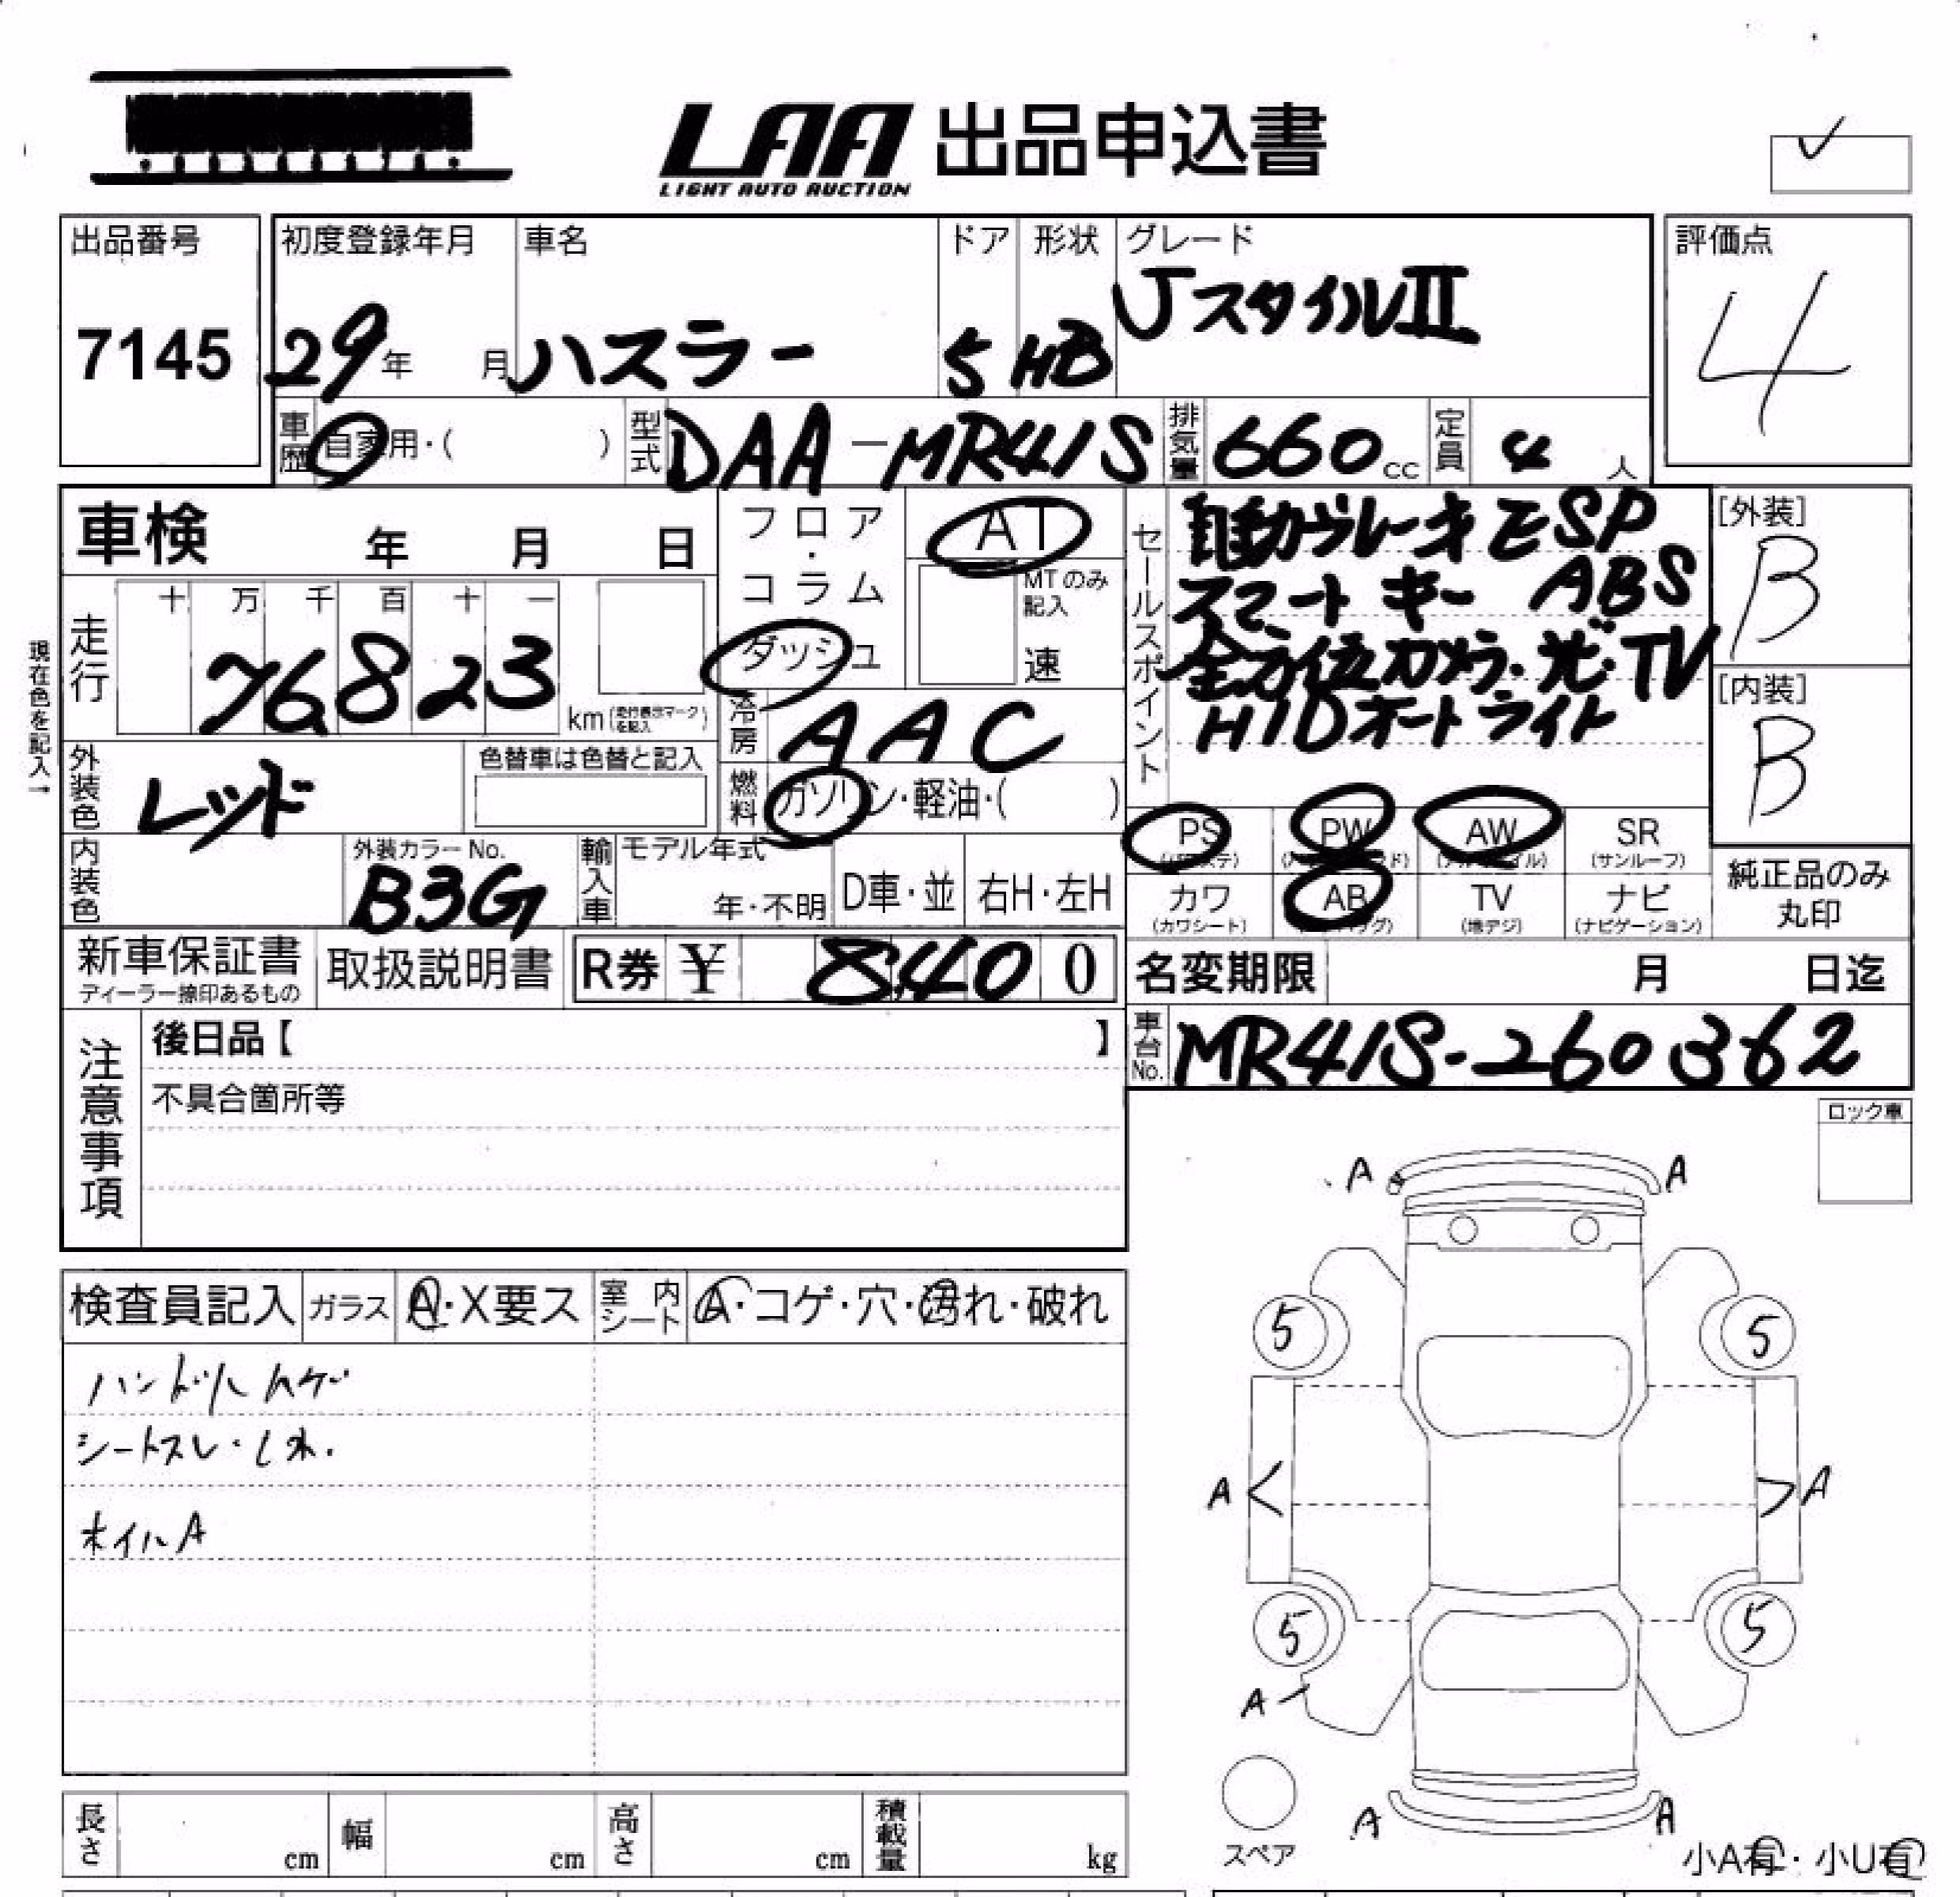 LAA 出品申込書
LIGHT AUTO AUCTION
出品番号
7145
初度登録年月
29年 月
車名
ハスラー
ドア
5
形状
HB
グレード
JスタイルⅡ
評価点
4
車歴 自家用・( )
型式 DAA-MR41S
排気量 660cc
定員 4人
車検 年 月 日
フロア・コラム
ダッシュ
AT
MTのみ記入
速
セールスポイント
自動ブレーキ ESP
スマートキー ABS
全方位カメラ・光・TV
HIDオートライト
[外装]
B
[内装]
B
走行
十 万 千 百 十 一
76823
km(走行表示マークを記入)
現在色を記入→
冷房 AAC
燃料 ガソリン・軽油・( )
外装色 レッド
色替車は色替と記入
内装色
外装カラーNo.
B3G
輸入車
モデル年式
年・不明
D車・並
右H・左H
PS
(パワステ)
PW
AW
SR
(サンルーフ)
カワ
(カワシート)
AB
TV
(地デジ)
ナビ
(ナビゲーション)
純正品のみ
丸印
新車保証書
ディーラー捺印あるもの
取扱説明書
R券 ¥ 8,400
名変期限 月 日迄
車台No. MR41S-260362
注意事項
後日品【 】
不具合箇所等
ロック車
検査員記入
ガラス A・X要ス
室内シート A・コゲ・穴・汚れ・破れ
ハンドルハゲ
シートスレ・しみ.
ホイルA
A A
5 5
A A
5 5
A
A A
スペア
小A有・小U有
長さ cm
幅 cm
高さ cm
積載量 kg